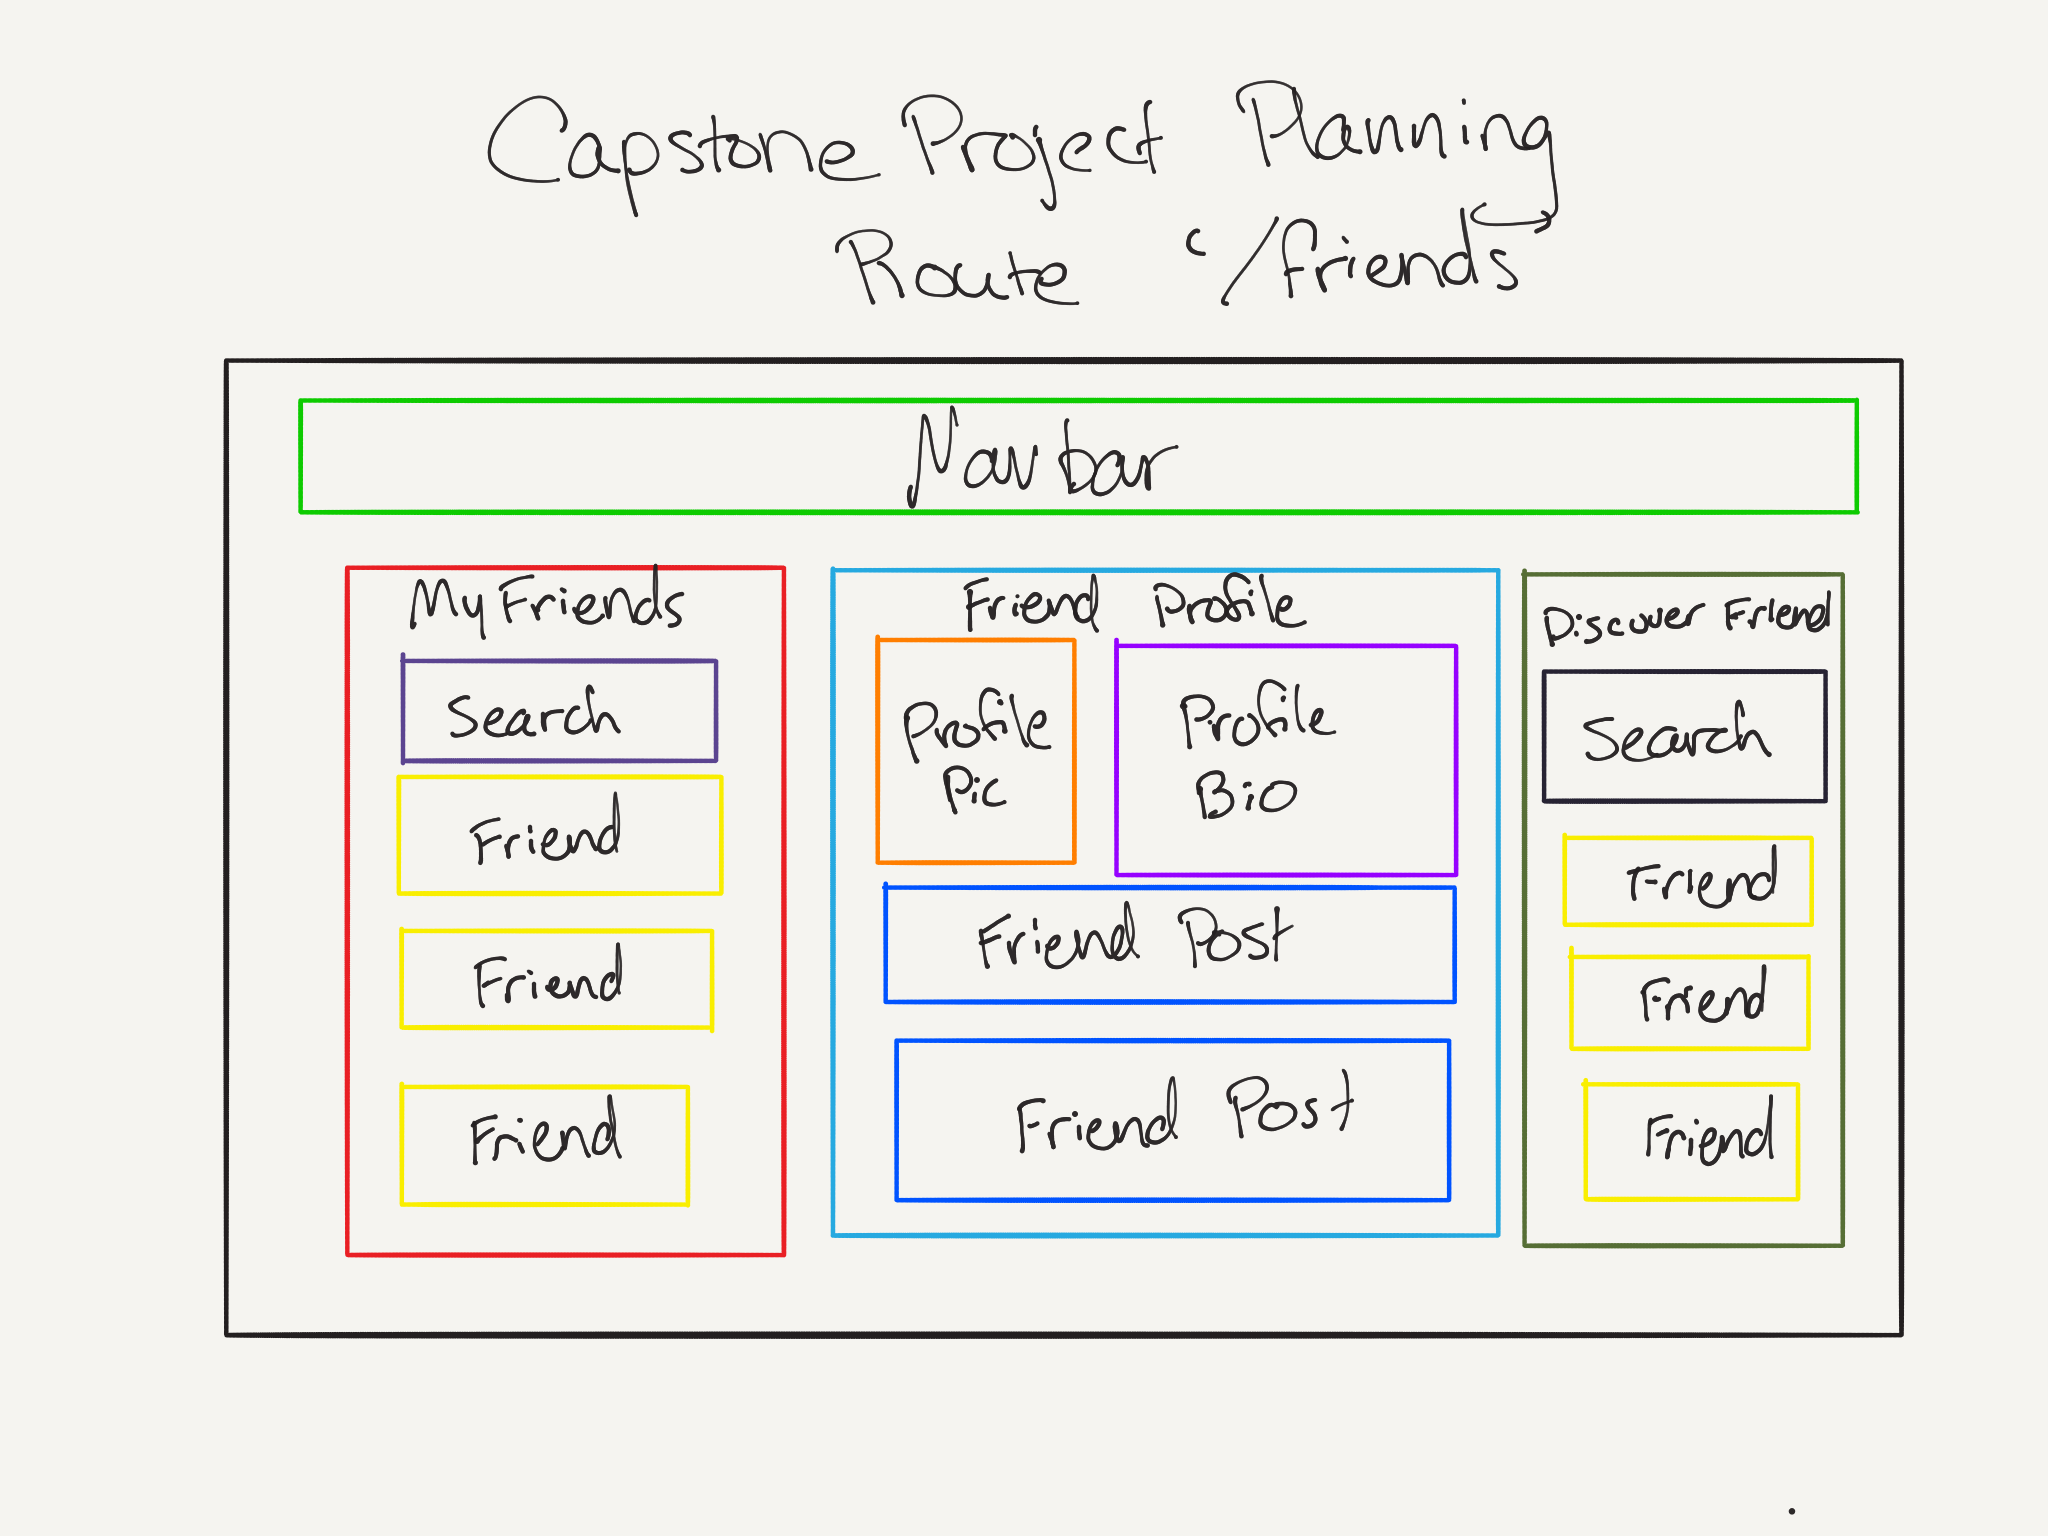 Capstone Project Planning
Route '/friends'
Navbar
My Friends
Search
Friend
Friend
Friend
Friend Profile
Profile
Pic
Profile
Bio
Friend Post
Friend Post
Discover Friend
Search
Friend
Friend
Friend